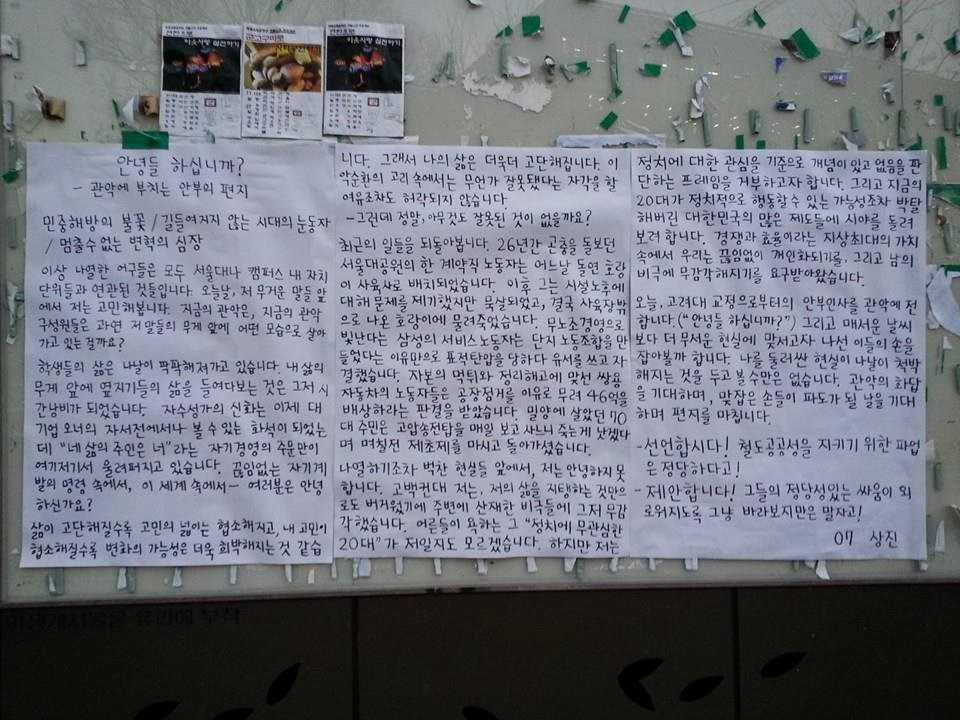 이웃사랑 실천하기
이웃사랑 실천하기
안녕들 하십니까?
- 관악에 부치는 안부의 편지
민중해방의 불꽃 / 길들여지지 않는 시대의 눈동자
/ 멈출수 없는 변혁의 심장
이상 나열한 어구들은 모두 서울대나 캠퍼스 내 자치
단위들과 연관된 것들입니다. 오늘날, 저 무거운 말들 앞
에서 저는 고민해봅니다. 지금의 관악은, 지금의 관악
구성원들은 과연 저 말들의 무게 앞에 어떤 모습으로 살아
가고 있는 걸까요?
학생들의 삶은 나날이 팍팍해져가고 있습니다. 내 삶의
무게 앞에 옆지기들의 삶을 들여다보는 것은 그저 시
간낭비가 되었습니다. 자수성가의 신화는 이제 대
기업 오너의 자서전에서나 볼 수 있는 화석이 되었는
데 "네 삶의 주인은 너"라는 자기경영의 주문만이
여기저기서 울려퍼지고 있습니다. 끊임없는 자기계
발의 명령 속에서, 이 세계 속에서- 여러분은 안녕
하신가요?
삶이 고단해질수록 고민의 넓이는 협소해지고, 내 고민이
협소해질수록 변화의 가능성은 더욱 희박해지는 것 같습
니다. 그래서 나의 삶은 더욱더 고단해집니다. 이
악순환의 고리 속에서는 무언가 잘못됐다는 자각을 할
여유조차도 허락되지 않습니다.
-그런데 정말, 아무것도 잘못된 것이 없을까요?
최근의 일들을 되돌아봅니다. 26년간 곤충을 돌보던
서울대공원의 한 계약직 노동자는 어느날 돌연 호랑
이 사육사로 배치되었습니다. 이후 그는 시설노후에
대해 문제를 제기했지만 묵살되었고, 결국 사육장밖
으로 나온 호랑이에 물려죽었습니다. 무노조경영으로
빛난다는 삼성의 서비스노동자는 단지 노동조합을 만
들었다는 이유만으로 표적탄압을 당하다 유서를 쓰고 자
결했습니다. 자본의 먹튀와 정리해고에 맞선 쌍용
자동차의 노동자들은 공장점거를 이유로 무려 46억을
배상하라는 판결을 받았습니다. 밀양에 살았던 70
대 주민은 고압송전탑을 매일 보고 사느니 죽는게 낫겠다
며 며칠전 제초제를 마시고 돌아가셨습니다.
나열하기조차 벅찬 현실들 앞에서, 저는 안녕하지 못
합니다. 고백컨대 저는, 저의 삶을 지탱하는 것만으
로도 버거웠기에 주변에 산재한 비극들에 그저 무감
각했습니다. 어른들이 욕하는 그 "정치에 무관심한
20대"가 저일지도 모르겠습니다. 하지만 저는
정치에 대한 관심을 기준으로 개념이 있고 없음을 판
단하는 프레임을 거부하고자 합니다. 그리고 지금의
20대가 정치적으로 행동할수 있는 가능성조차 박탈
해버린 대한민국의 많은 제도들에 시야를 돌려
보려 합니다. 경쟁과 효율이라는 지상최대의 가치
속에서 우리는 끊임없이 개인화되기를, 그리고 남의
비극에 무감각해지기를 요구받아왔습니다.
오늘, 고려대 교정으로부터의 안부인사를 관악에 전
합니다.("안녕들 하십니까?") 그리고 매서운 날씨
보다 더 무서운 현실에 맞서고자 나선 이들의 손을
잡아볼까 합니다. 나를 둘러싼 현실이 나날이 척박
해지는 것을 두고 볼 수만은 없습니다. 관악의 화답
을 기대하며, 맞잡은 손들이 파도가 될 날을 기대
하며 편지를 마칩니다.
-선언합시다! 철도공공성을 지키기 위한 파업
은 정당하다고!
-제안합니다! 그들의 정당성있는 싸움이 외
로워지도록 그냥 바라보지만은 말자고!
07 상진